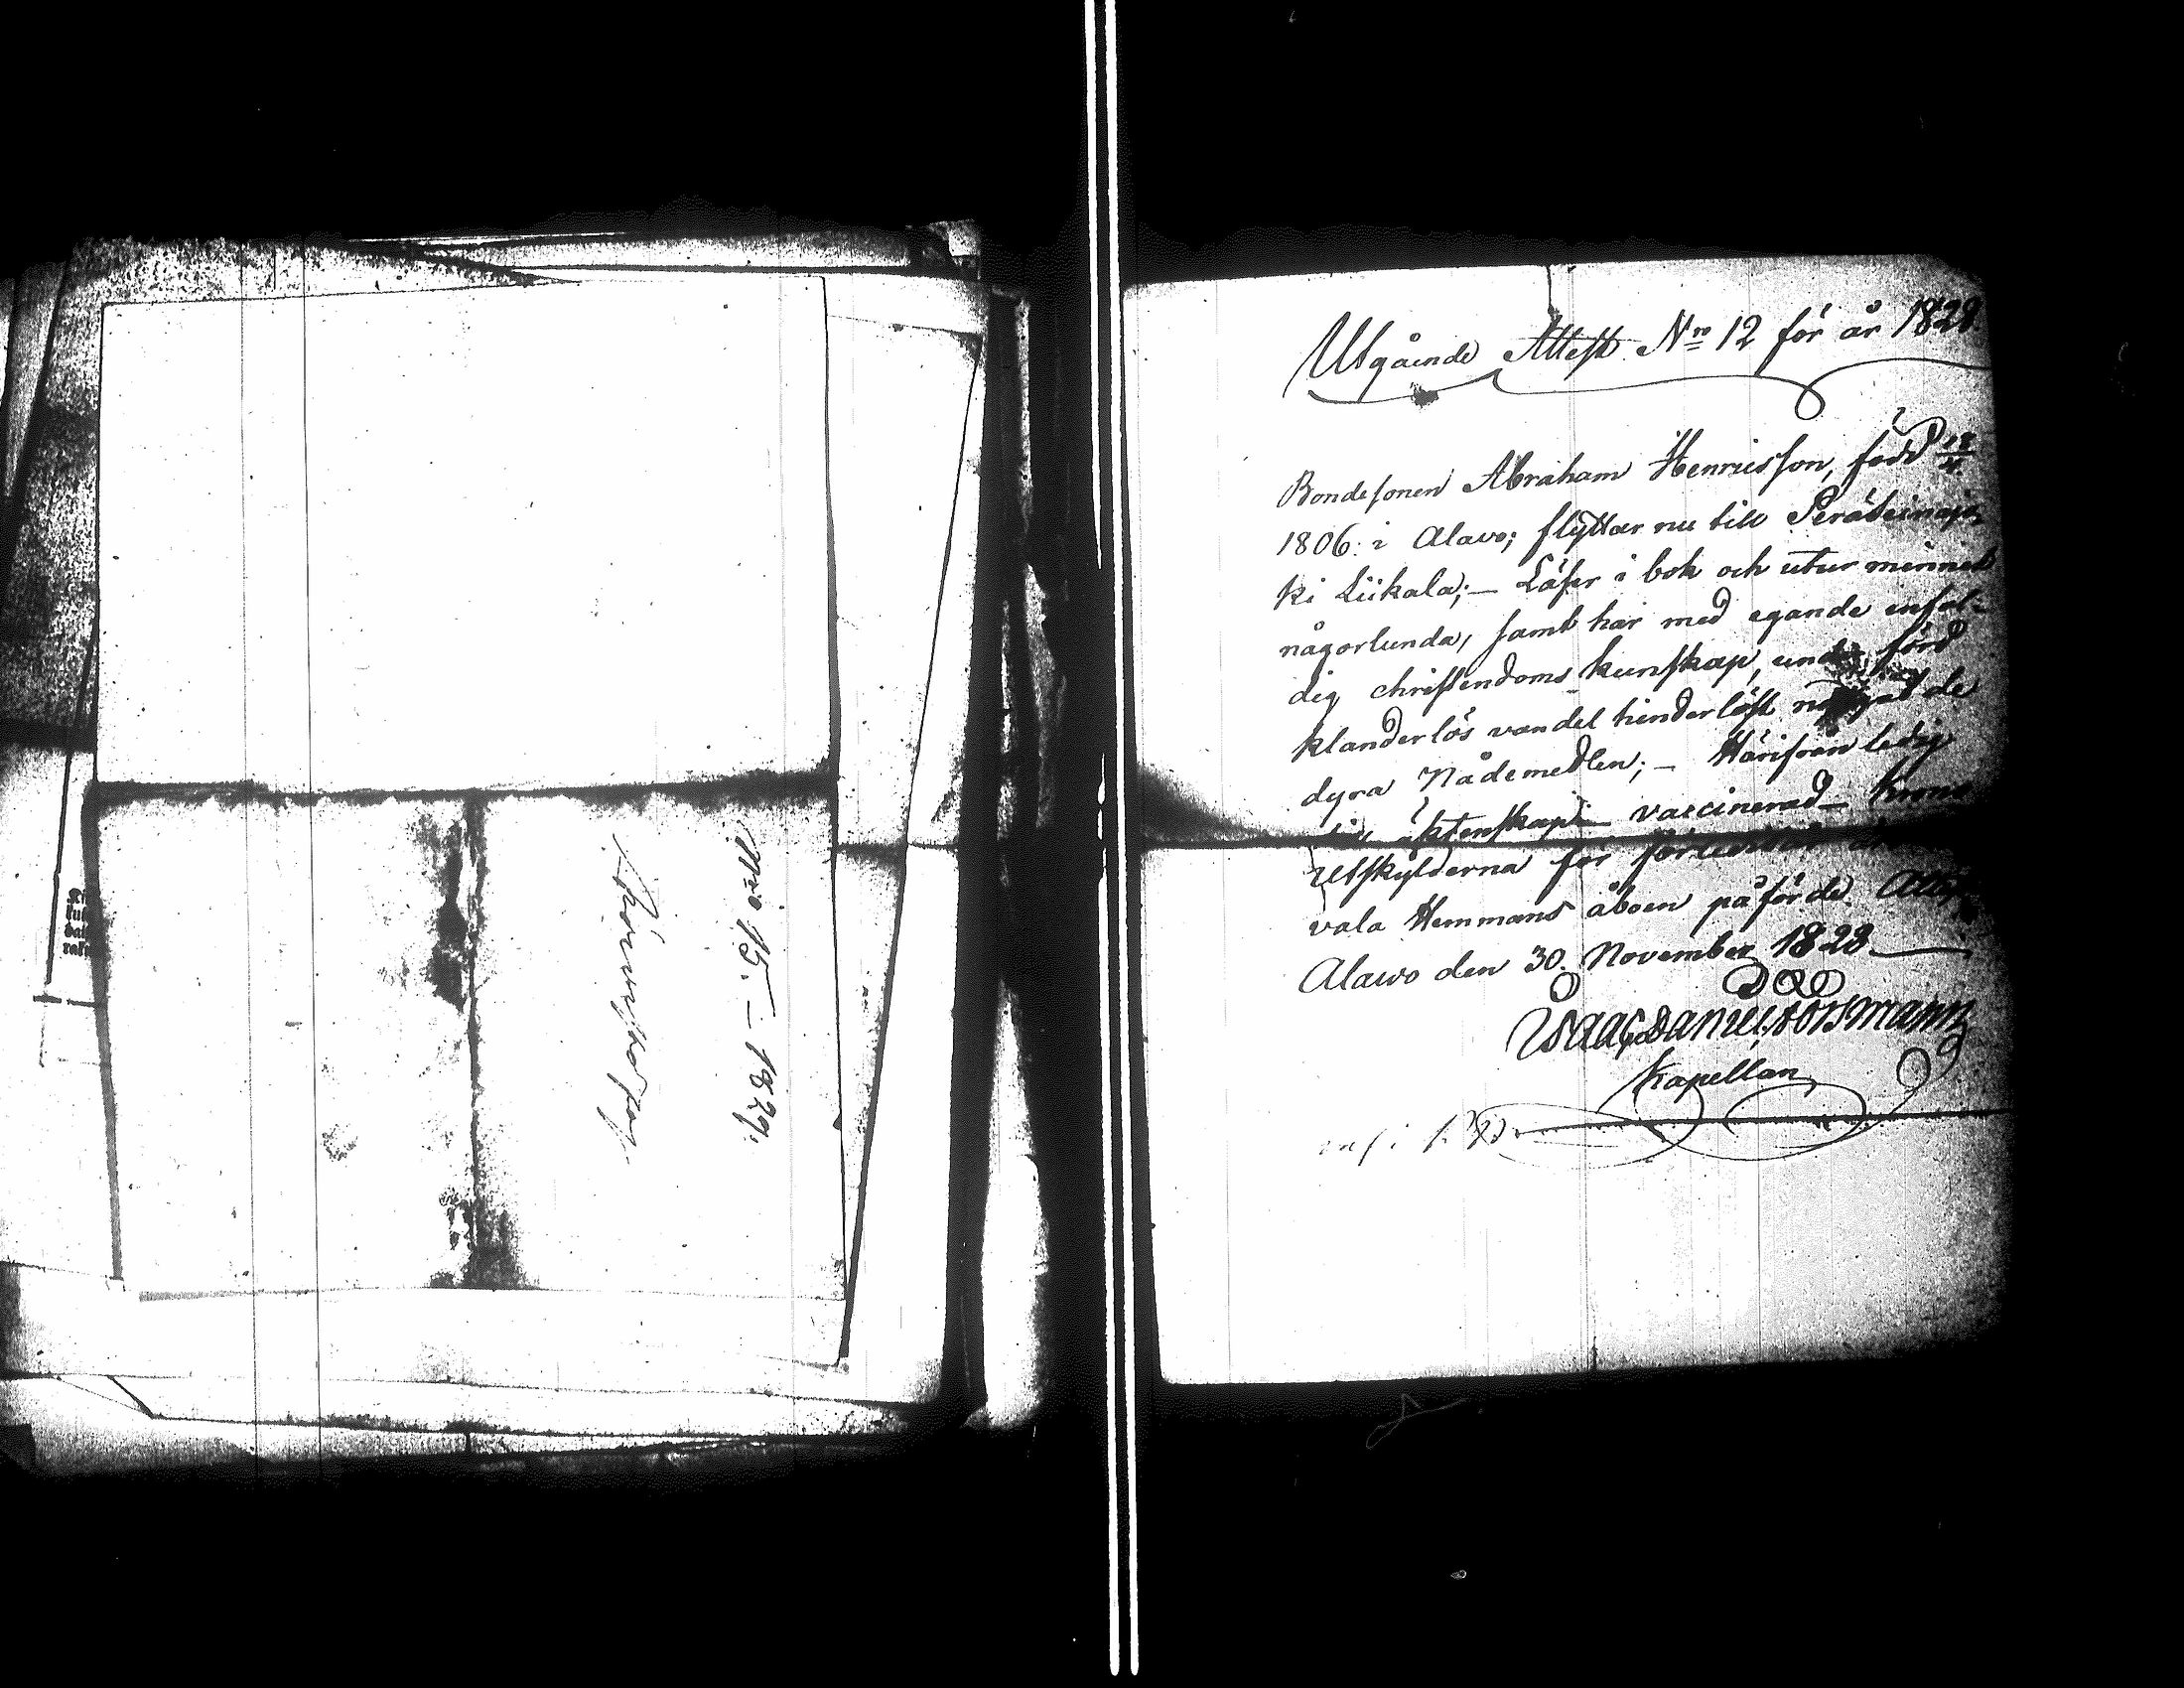 Nro 15. – 1829.
Utgående Attest. Nro 12 för år 1828.
Bondesonen Abraham Henricsson, född
1806. i Alavo; flyttar nu till Peräseinäjo-
ki Liikala;— Läser i bok och utur minnet
någorlunda, samt har med egande enfal-
dig christendoms kunskap, under förd
klanderlös vandel hinderlöst de
dyra Nådemedlen;— Härifrån ledig
äktenskap— vaccinerad— Krono
utskylderna för
vala Hemmans åboen påförde.
Alawo den 30. November 1828.
Isaac Daniel Forsmann
Kapellan